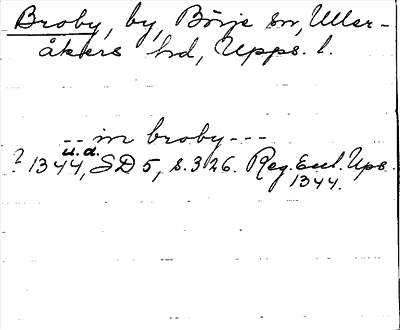 Broby, by, Börje sn, Uller-
åkers hd, Upps. l.
-- in broby ---
? 1344, u.d. SD 5, s. 326. Reg. Eccl. Ups.
1344.